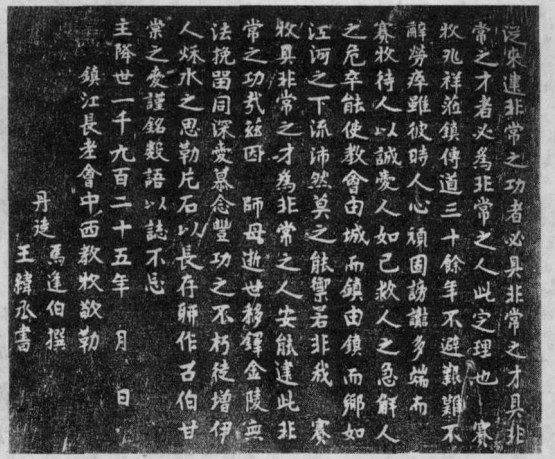 從來建非常之功者必具非常之才具非
常之才者必為非常之人此定理也　賽
牧兆祥蒞鎮傳道三十餘年不避艱難不
辭勞瘁雖彼時人心頑固謗讟多端而
賽牧待人以誠愛人如己救人之急解人
之危卒能使教會由城而鎮由鎮而鄉如
江河之下流沛然莫之能禦若非我　賽
牧具非常之才為非常之人安能建此非
常之功哉茲因　師母逝世移鐸金陵無
法挽留同深愛慕念豐功之不朽徒增伊
人秋水之思勒片石以長存聊作召伯甘
棠之愛謹銘數語以誌不忘
主降世一千九百二十五年　月　日
鎮江長老會中西教牧敬勒
丹徒　馬逢伯撰
王緯丞書